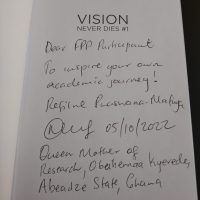 VISION
NEVER DIES #1
Dear EPP Participant
To inspire your own
academic journey!
Refilwe
05/10/2022
Queen Mother of
Research, Obaahemaa
Abeadze State, Ghana